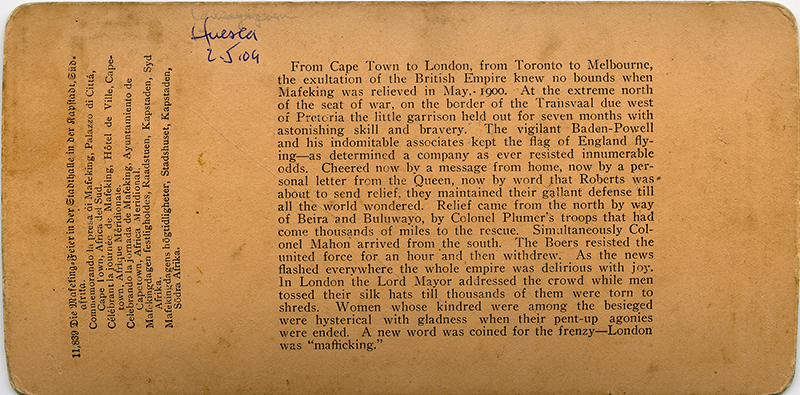 Huesca
2.5.04
From Cape Town to London, from Toronto to Melbourne,
the exultation of the British Empire knew no bounds when
Mafeking was relieved in May, 1900. At the extreme north
of the seat of war, on the border of the Transvaal due west
of Pretoria the little garrison held out for seven months with
astonishing skill and bravery. The vigilant Baden-Powell
and his indomitable associates kept the flag of England fly-
ing—as determined a company as ever resisted innumerable
odds. Cheered now by a message from home, now by a per-
sonal letter from the Queen, now by word that Roberts was
about to send relief, they maintained their gallant defense till
all the world wondered. Relief came from the north by way
of Beira and Buluwayo, by Colonel Plumer's troops that had
come thousands of miles to the rescue. Simultaneously Col-
onel Mahon arrived from the south. The Boers resisted the
united force for an hour and then withdrew. As the news
flashed everywhere the whole empire was delirious with joy.
In London the Lord Mayor addressed the crowd while men
tossed their silk hats till thousands of them were torn to
shreds. Women whose kindred were among the besieged
were hysterical with gladness when their pent-up agonies
were ended. A new word was coined for the frenzy—London
was “mafficking.”
11,839 Die Mafeking-Feier in der Stadthalle in der Kapstadt, Süd-
afrika.
Commemorando la presa di Mafeking, Palazzo di Città,
Cape Town, Africa del Sud.
Célébrant la journée de Mafeking, Hôtel de Ville, Cape-
town, Afrique Méridionale.
Celebrando la jornada de Mafeking, Ayuntamiento de
Capetown, Africa Meridional.
Mafekingdagen festligholdes, Raadstuen, Kapstaden, Syd
Afrika.
Mafekingdagens högtidligheter, Stadshuset, Kapstaden,
Södra Afrika.